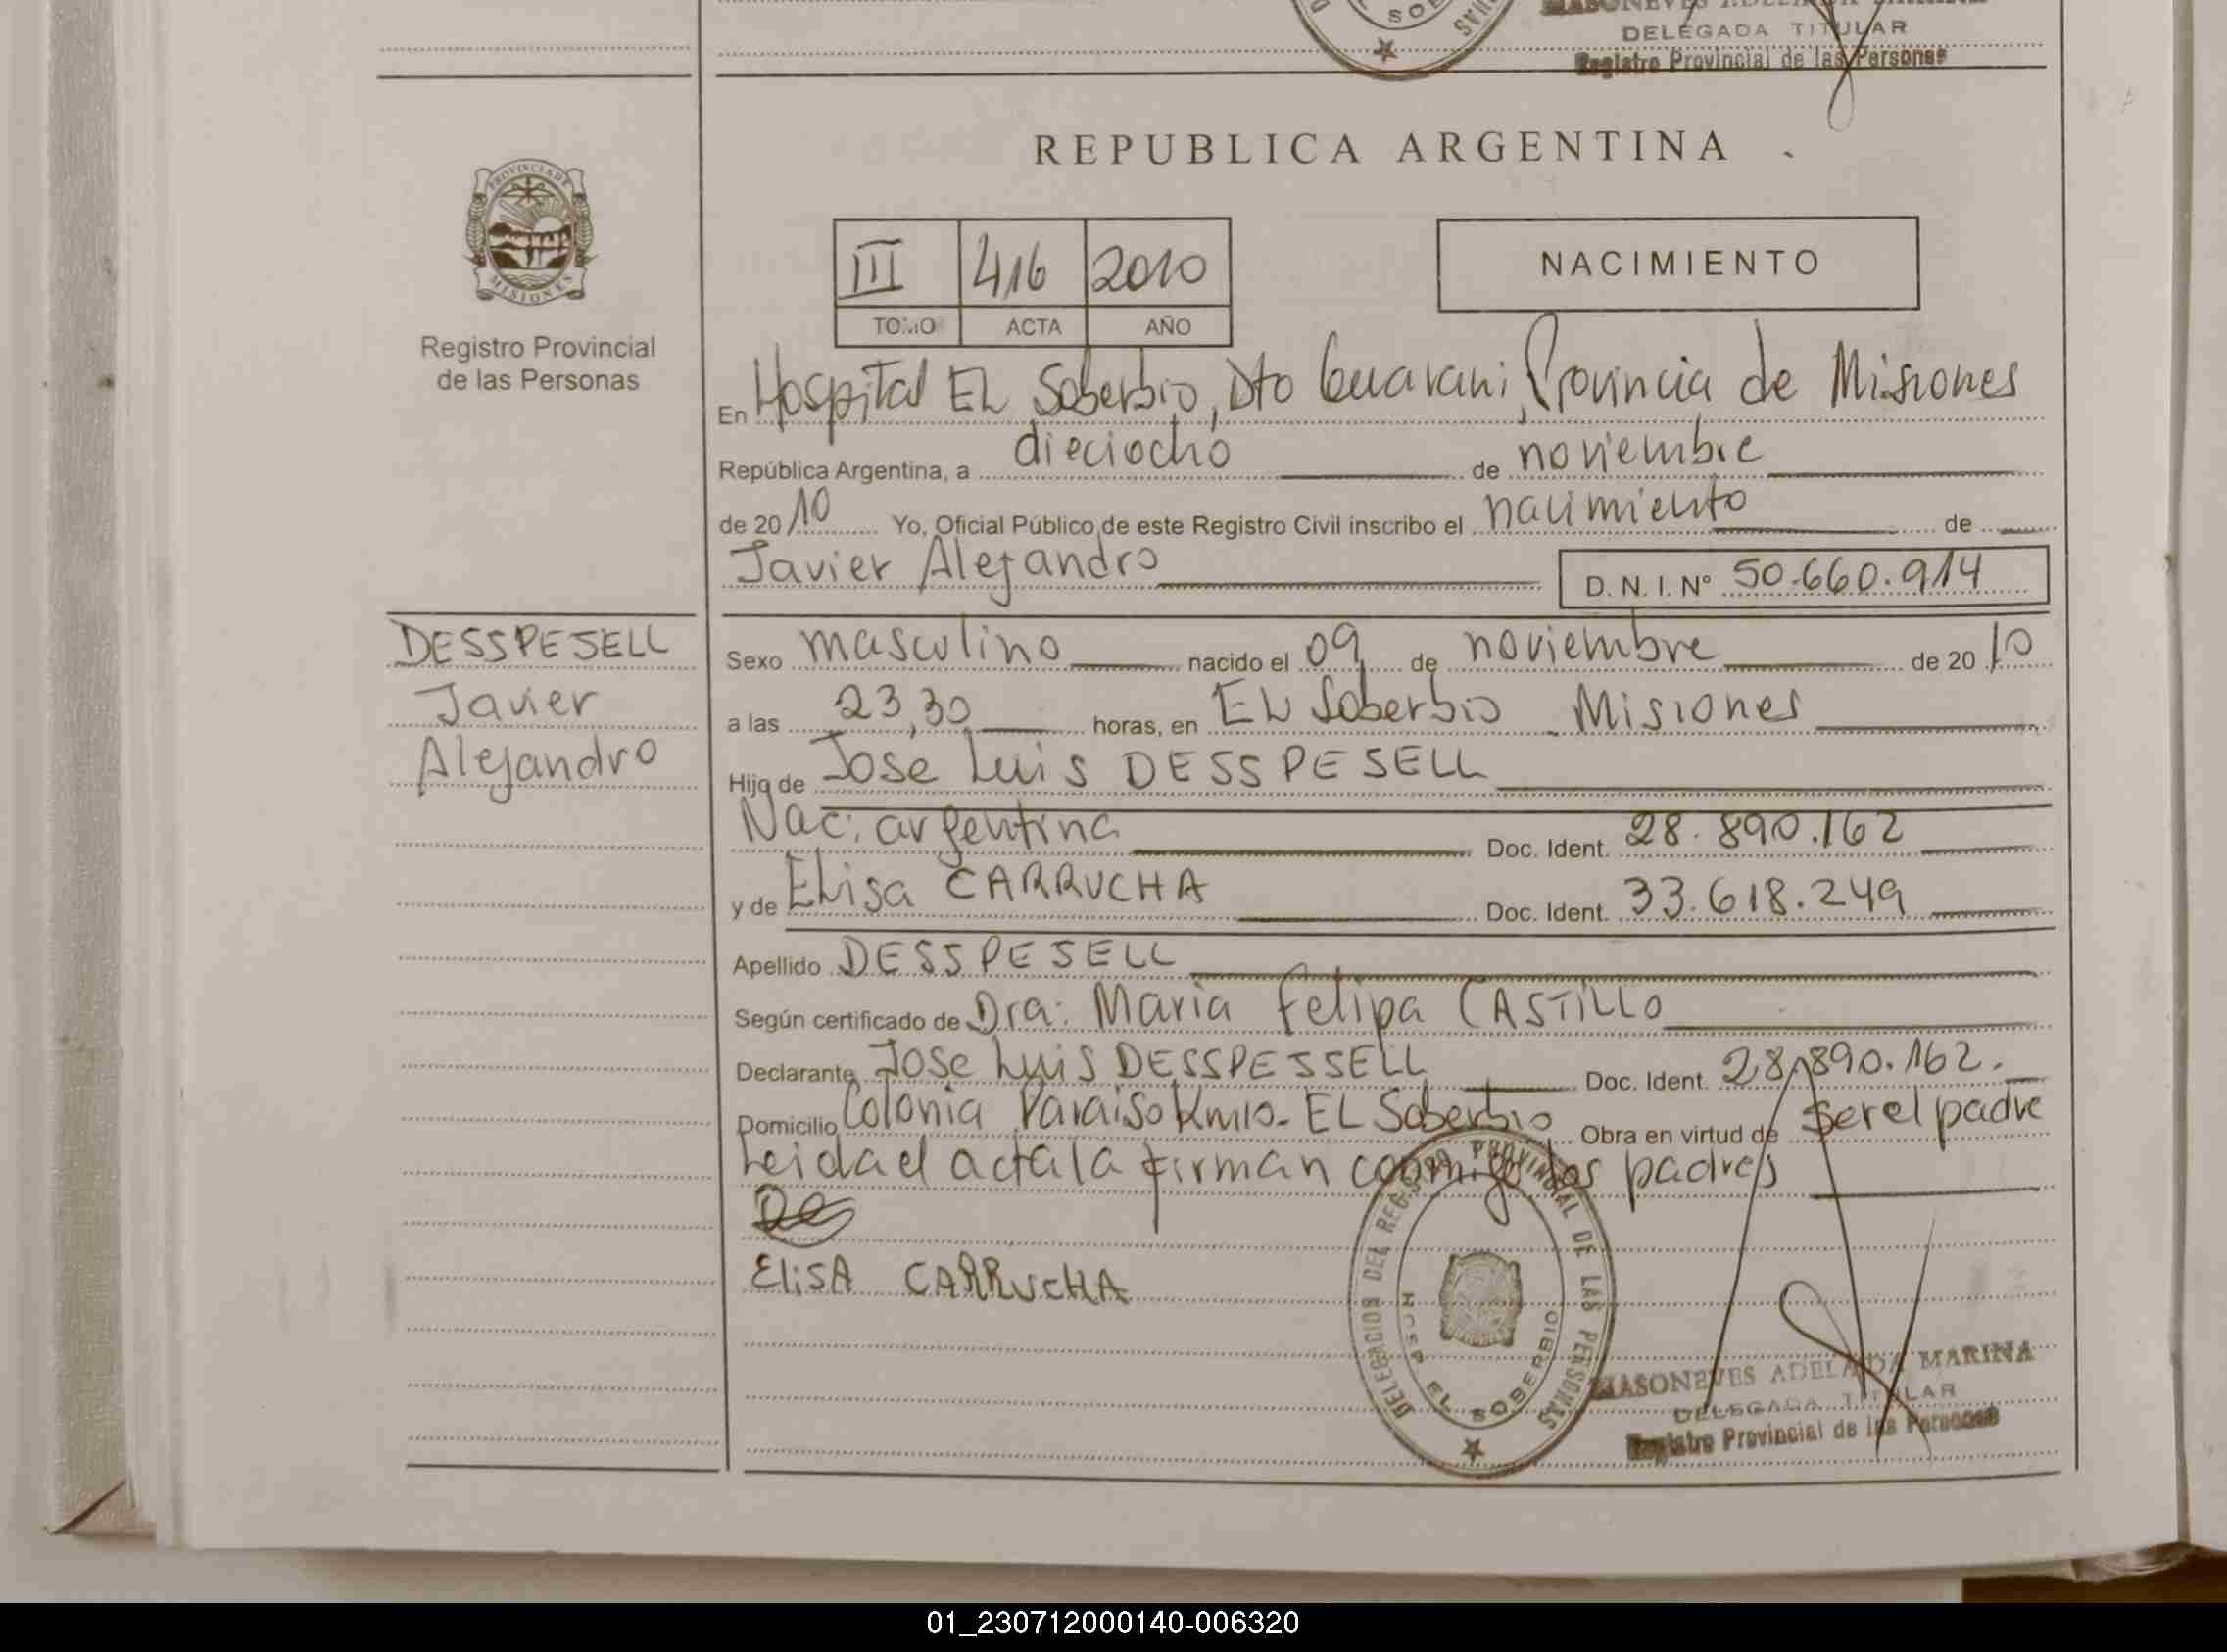 DELEGADA TITULAR
Registro Provincial de las Personas
REPUBLICA ARGENTINA
PROVINCIA DE
MISIONES
Registro Provincial
de las Personas
III 416 2010
TOMO ACTA AÑO
NACIMIENTO
En Hospital EL Soberbio, Dto Guarani, Provincia de Misiones
República Argentina, a dieciocho de noviembre
de 2010 Yo, Oficial Público de este Registro Civil inscribo el nacimiento de
Javier Alejandro D. N. I. Nº 50.660.914
DESSPESELL
Javier
Alejandro
Sexo masculino nacido el 09 de noviembre de 2010
a las 23,30 horas, en EL Soberbio - Misiones
Hijo de Jose Luis DESSPESELL
Nac: argentina Doc. Ident. 28.890.162
y de Elisa CARRUCHA Doc. Ident. 33.618.249
Apellido DESSPESELL
Según certificado de Dra: Maria Felipa CASTILLO
Declarante Jose Luis DESSPESSELL Doc. Ident. 28.890.162.
Domicilio Colonia Paraiso Km10- EL Soberbio Obra en virtud de ser el padre
Leida el acta la firman conmigo los padres
EliSA CARRUCHA
DELEGACION DEL REGISTRO PROVINCIAL DE LAS PERSONAS
HOSP EL SOBERBIO
MASONEVES ADELAIDA MARINA
DELEGADA TITULAR
Registro Provincial de las Personas
01_230712000140-006320